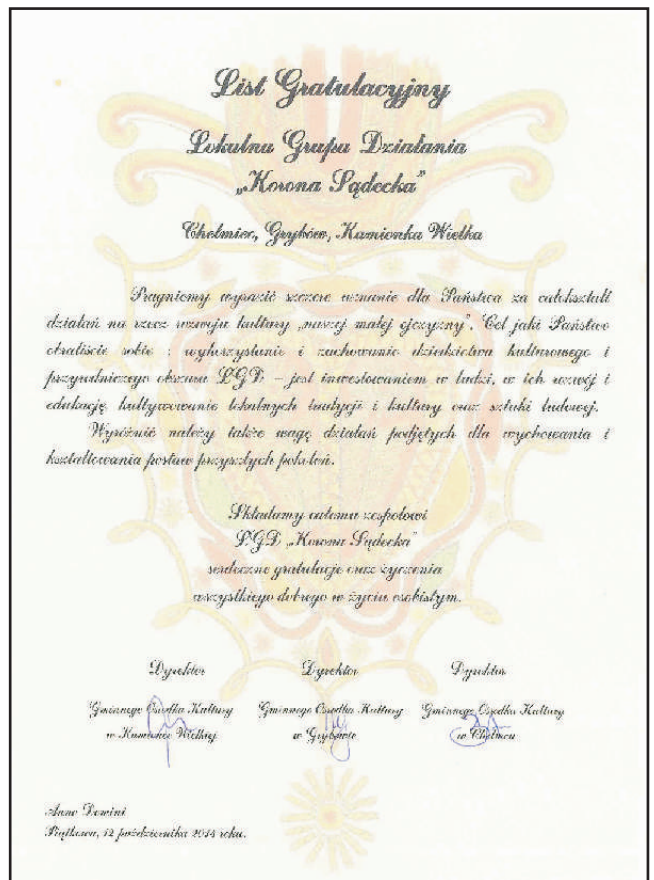 List Gratulacyjny
Lokalna Grupa Działania
„Korona Sądecka”
Chełmiec, Grybów, Kamionka Wielka
Pragniemy wyrazić szczere uznanie dla Państwa za całokształt
działań na rzecz rozwoju kultury „naszej małej ojczyzny”. Cel jaki Państwo
obraliście sobie : wykorzystanie i zachowanie dziedzictwa kulturowego i
przyrodniczego obszaru LGD – jest inwestowaniem w ludzi, w ich rozwój i
edukację, kultywowanie lokalnych tradycji i kultury oraz sztuki ludowej.
Wyróżnić należy także wagę działań podjętych dla wychowania i
kształtowania postaw przyszłych pokoleń.
Składamy całemu zespołowi
LGD „Korona Sądecka”
serdeczne gratulacje oraz życzenia
wszystkiego dobrego w życiu osobistym.
Dyrektor Dyrektor Dyrektor
Gminnego Ośrodka Kultury Gminnego Ośrodka Kultury Gminnego Ośrodka Kultury
w Kamionce Wielkiej w Grybowie w Chełmcu
Anno Domini
Piątkowa, 12 października 2014 roku.